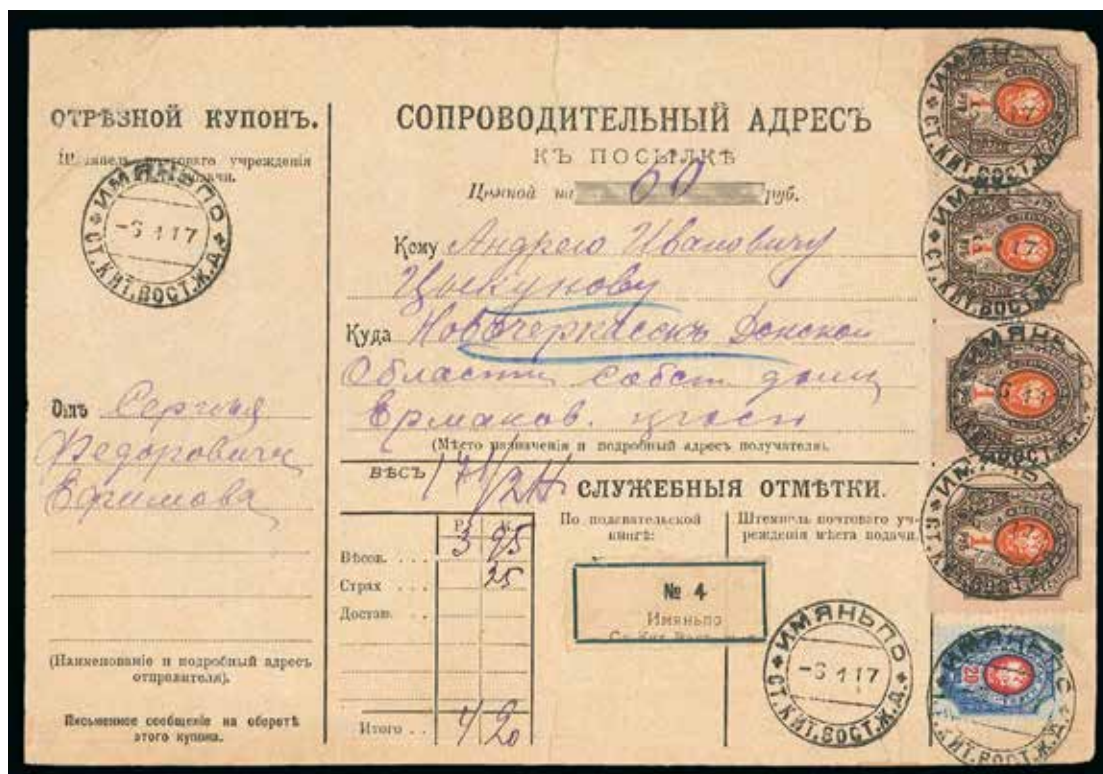 ОТРѢЗНОЙ КУПОНЪ.
Штемпель почтоваго учрежденія
подачи.
ИМЯНЬПО
-6 1 17
СТ.КИТ.ВОСТ.Ж.Д.
Отъ Сергѣя
Федоровича
Ефимова
(Наименованіе и подробный адресъ
отправителя).
Письменное сообщеніе на оборотѣ
этого купона.
СОПРОВОДИТЕЛЬНЫЙ АДРЕСЪ
КЪ ПОСЫЛКѢ
Цѣнной на 60 руб.
Кому Андрею Ивановичу
Цыкунову
Куда Новочеркасскъ Донской
Области собст. домъ
Ермаков.
(Мѣсто назначенія и подробный адресъ получателя).
ВѢСЪ 17 1/2
Р. К.
Вѣсов. . . . 3 95
Страх . . . 25
Достав.
Итого . . 4 20
СЛУЖЕБНЫЯ ОТМѢТКИ.
По подавательской
книгѣ:
№ 4
Имяньпо
Ст. Кит. Вост.
Штемпель почтоваго уч-
режденія мѣста подачи.
ИМЯНЬПО
-6 1 17
СТ.КИТ.ВОСТ.Ж.Д.
ИМЯНЬ
1
17
СТ.КИТ.ВОСТ.Ж.Д.
ИМЯНЬ
1
17
СТ.КИТ.ВОСТ.Ж.Д.
ИМЯНЬПО
1
ВОСТ.Ж.Д.
ИМЯНЬПО
1
СТ.КИТ.ВОСТ.Ж.Д.
ИМЯНЬПО
20
КИТ.ВОСТ.Ж.Д.